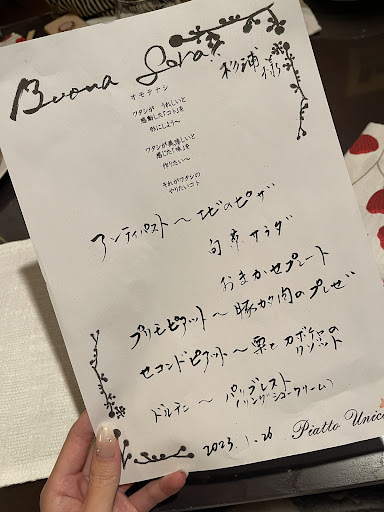 Buona Sera!
杉浦様
オモテナシ
ワタシが うれしいと
感動した「コト」を
形にしよう〜
ワタシが美味しいと
感じた「味」を
作りたい〜
それがワタシの
やりたいコト
アンティパスト〜エビのピザ
旬菜サラダ
おまかせプレート
プリモピアット〜豚肉のブレゼ
セコンドピアット〜栗とカボチャの
リゾット
ドルチェ〜パリブレスト
(リングシュークリーム)
2023.1.26
Piatto Unico